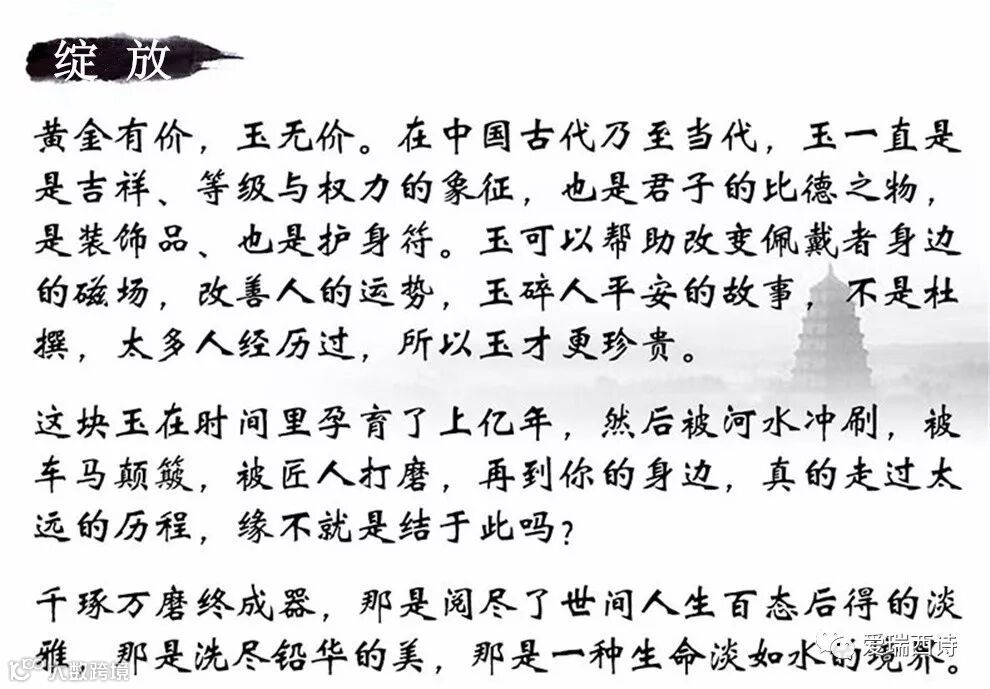 绽放
黄金有价，玉无价。在中国古代乃至当代，玉一直是
是吉祥、等级与权力的象征，也是君子的比德之物，
是装饰品、也是护身符。玉可以帮助改变佩戴者身边
的磁场，改善人的运势，玉碎人平安的故事，不是杜
撰，太多人经历过，所以玉才更珍贵。
这块玉在时间里孕育了上亿年，然后被河水冲刷，被
车马颠簸，被匠人打磨，再到你的身边，真的走过太
远的历程，缘不就是结于此吗？
千琢万磨终成器，那是阅尽了世间人生百态后得的淡
雅，那是洗尽铅华的美，那是一种生命淡如水的境界。
爱瑞西诗
大数跨境